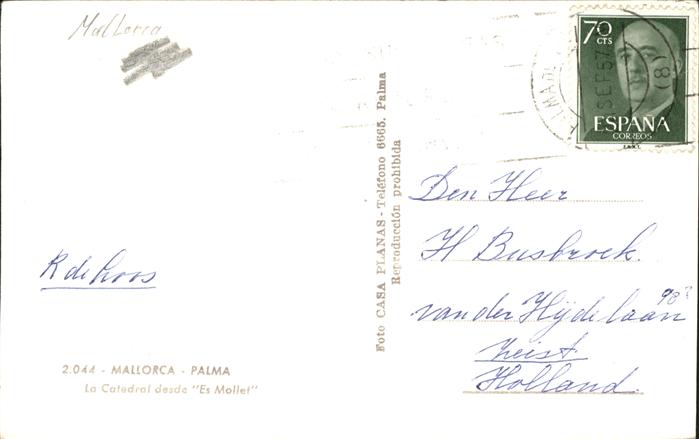 Mallorca
70
CTS
ESPAÑA
CORREOS
SEP 57
(8)
Foto CASA PLANAS - Teléfono 6665. Palma
Reproducción prohibida
Den Heer
H Busbroek.
van der Hijdelaan
Zeist
Holland.
R de Loos
2.044 - MALLORCA - PALMA
La Catedral desde "Es Mollet"